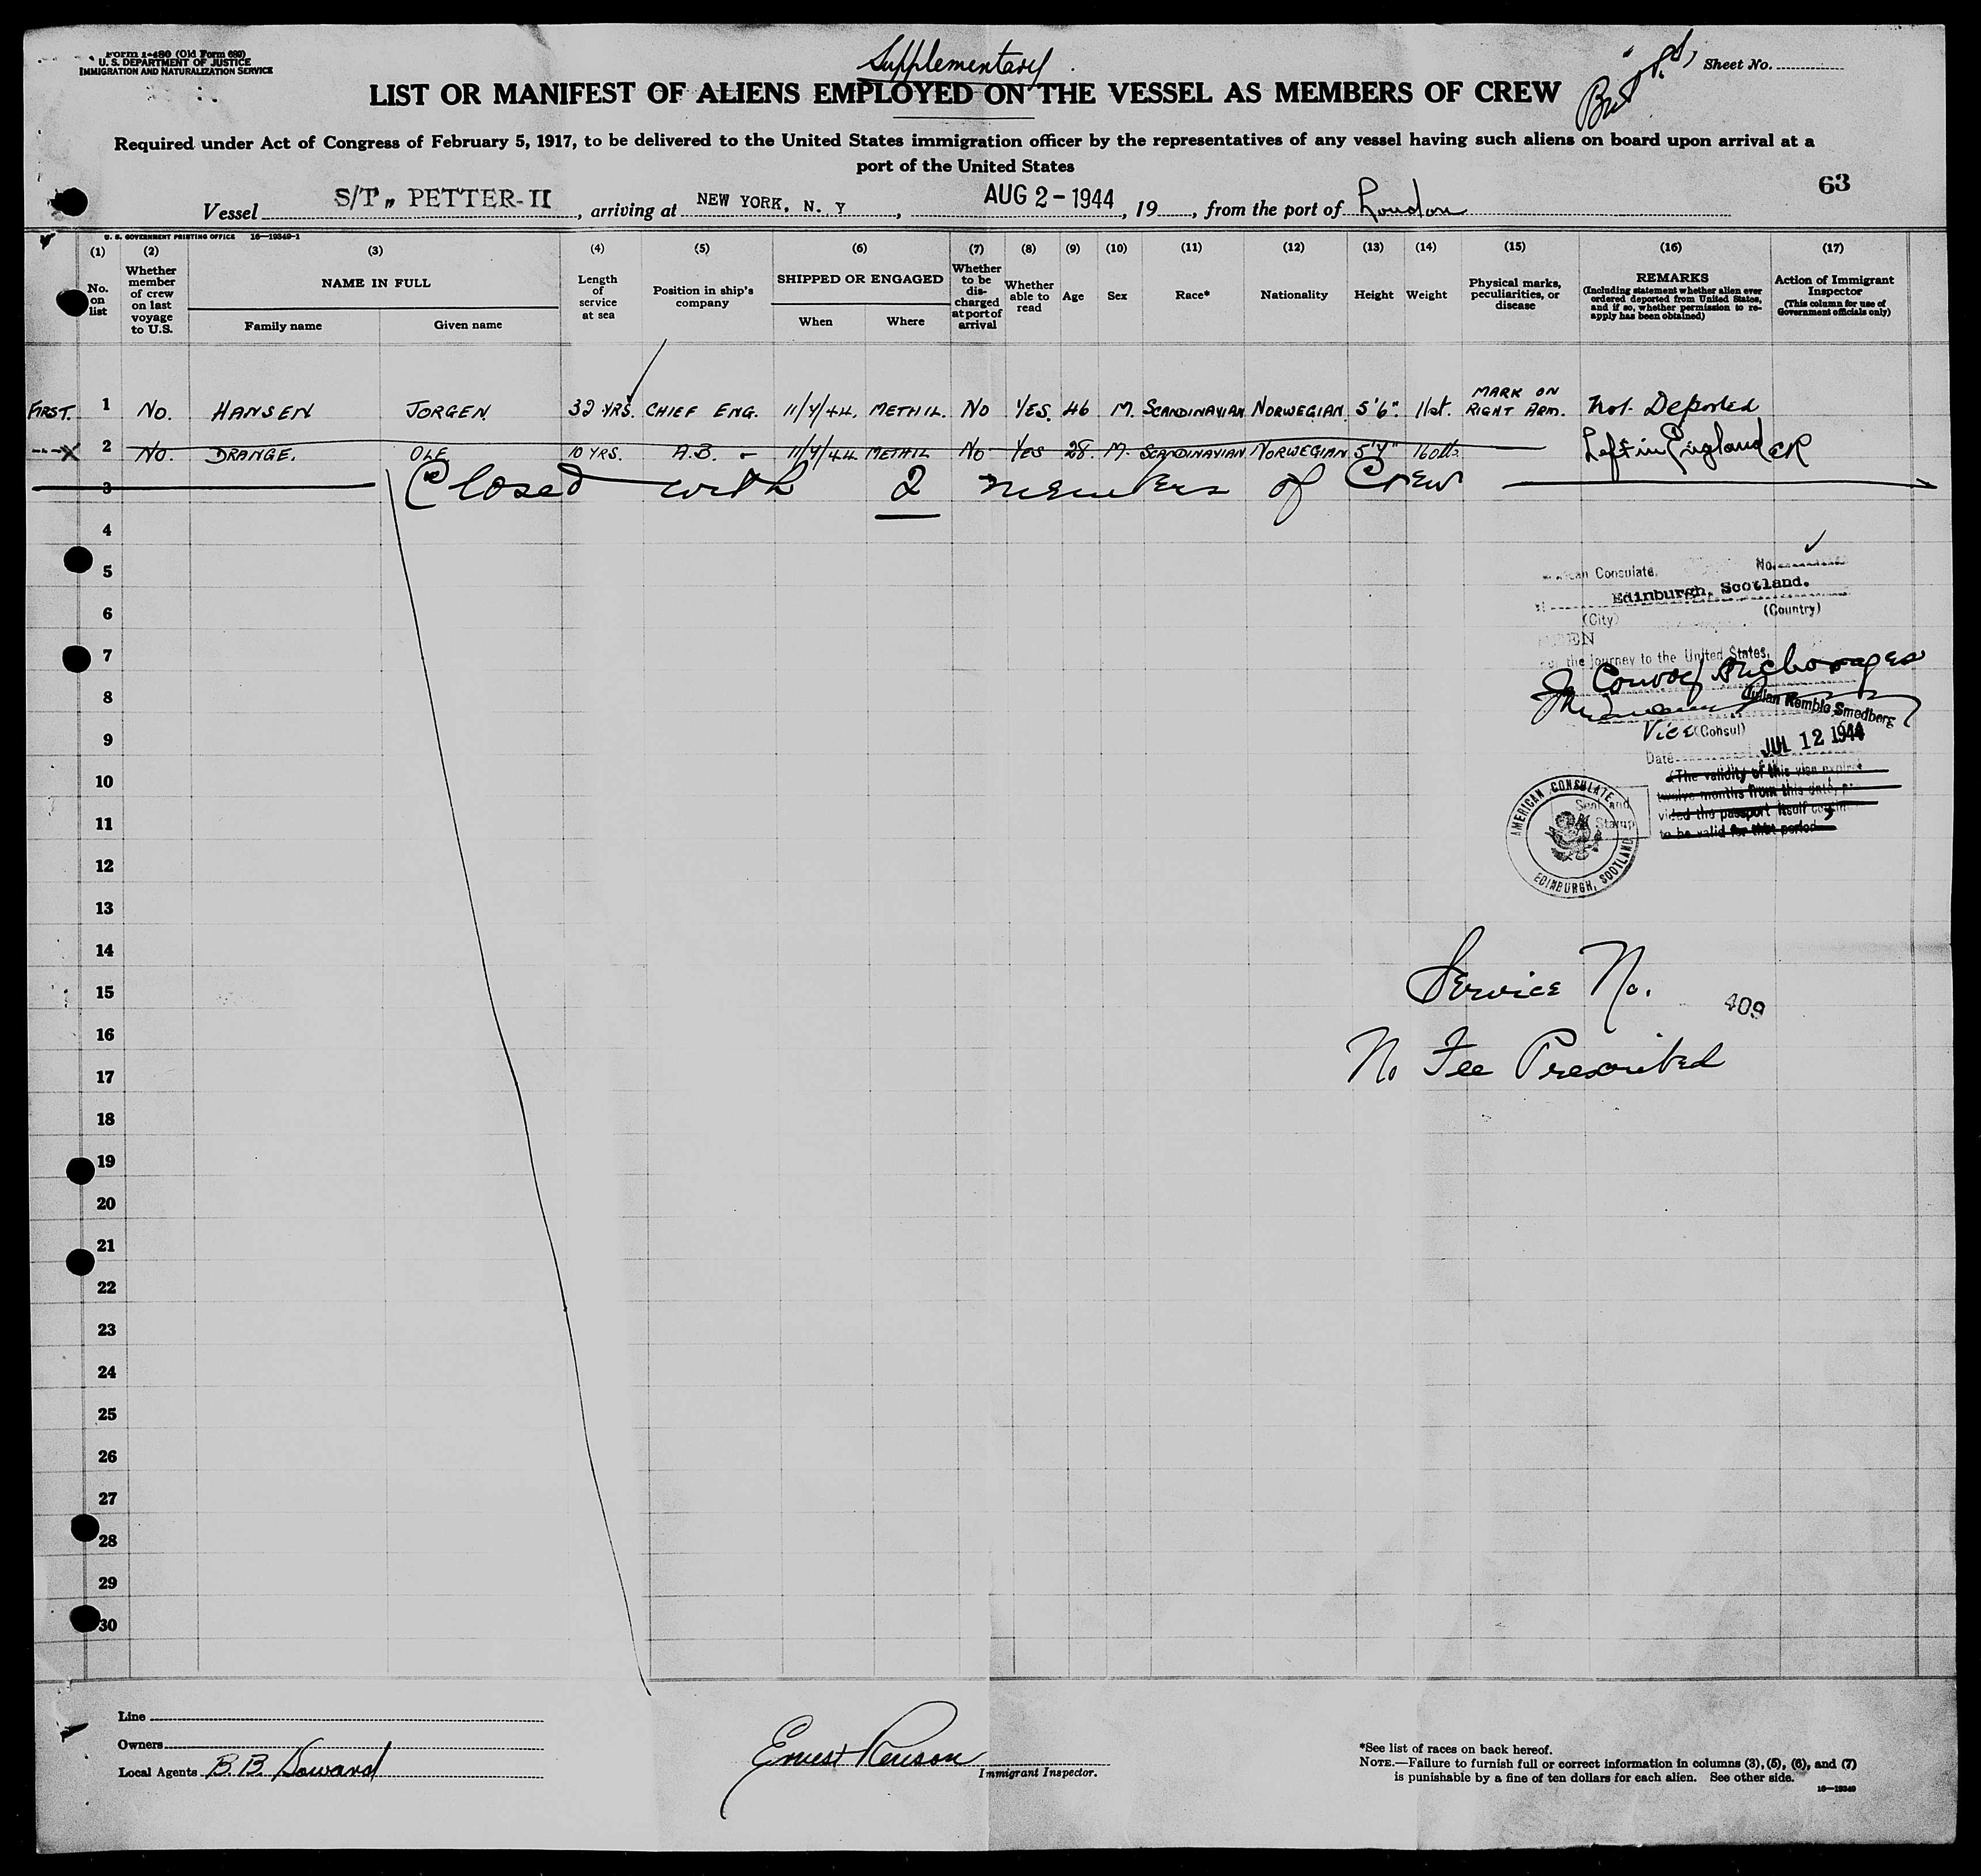 Form I-480 (Old Form 689)
U. S. DEPARTMENT OF JUSTICE
IMMIGRATION AND NATURALIZATION SERVICE
Supplementary
Sheet No.
LIST OR MANIFEST OF ALIENS EMPLOYED ON THE VESSEL AS MEMBERS OF CREW
Required under Act of Congress of February 5, 1917, to be delivered to the United States immigration officer by the representatives of any vessel having such aliens on board upon arrival at a
port of the United States
63
Vessel S/T „ PETTER-II, arriving at NEW YORK, N. Y, AUG 2 - 1944, 19, from the port of London
U. S. GOVERNMENT PRINTING OFFICE 16—19349-1
(1) (2) (3) (4) (5) (6) (7) (8) (9) (10) (11) (12) (13) (14) (15) (16) (17)
No. on list
Whether member of crew on last voyage to U.S.
NAME IN FULL
Family name
Given name
Length of service at sea
Position in ship's company
SHIPPED OR ENGAGED
When
Where
Whether to be discharged at port of arrival
Whether able to read
Age
Sex
Race*
Nationality
Height
Weight
Physical marks, peculiarities, or disease
REMARKS
(Including statement whether alien ever ordered deported from United States, and if so, whether permission to reapply has been obtained)
Action of Immigrant Inspector
(This column for use of Government officials only)
FIRST. 1 NO. HANSEN JORGEN 32 YRS. CHIEF ENG. 11/7/44. METHIL. NO YES. 46 M. SCANDINAVIAN NORWEGIAN. 5'6". 11st. MARK ON RIGHT ARM. Not Deported
X 2 NO. DRANGE. OLE 10 YRS. A.B. - 11/7/44 METHIL NO YES 28. M. SCANDINAVIAN NORWEGIAN. 160 lbs. Left in England
3 Closed with 2 members of Crew
4
5
6
7
8
9
10
11
12
13
14
15
16
17
18
19
20
21
22
23
24
25
26
27
28
29
30
Consulate, No.
Edinburgh, Scotland.
(City) (Country)
the journey to the United States,
Convoy Anchorages
Vice (Consul)
Date JUL 12 1944
(The validity of this visa expires
twelve months from this date,
vided the passport itself
to be valid for that period
Seal and
Stamp
AMERICAN CONSULATE
EDINBURGH, SCOTLAND
Service No. 409
No Fee Prescribed
Line
Owners
Local Agents B. B.
Ernest
Immigrant Inspector.
*See list of races on back hereof.
NOTE.—Failure to furnish full or correct information in columns (3), (5), (6), and (7)
is punishable by a fine of ten dollars for each alien. See other side.
16—19349